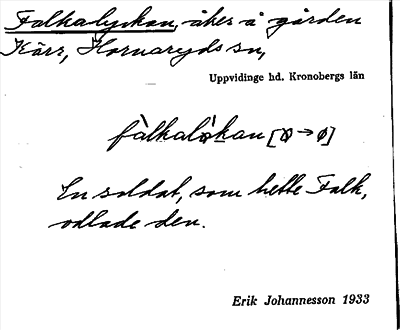 Falkalyckan, åker å gården
Kärr, Hornaryds sn,
Uppvidinge hd. Kronobergs län
En soldat, som hette Falk,
odlade den.
Erik Johannesson 1933